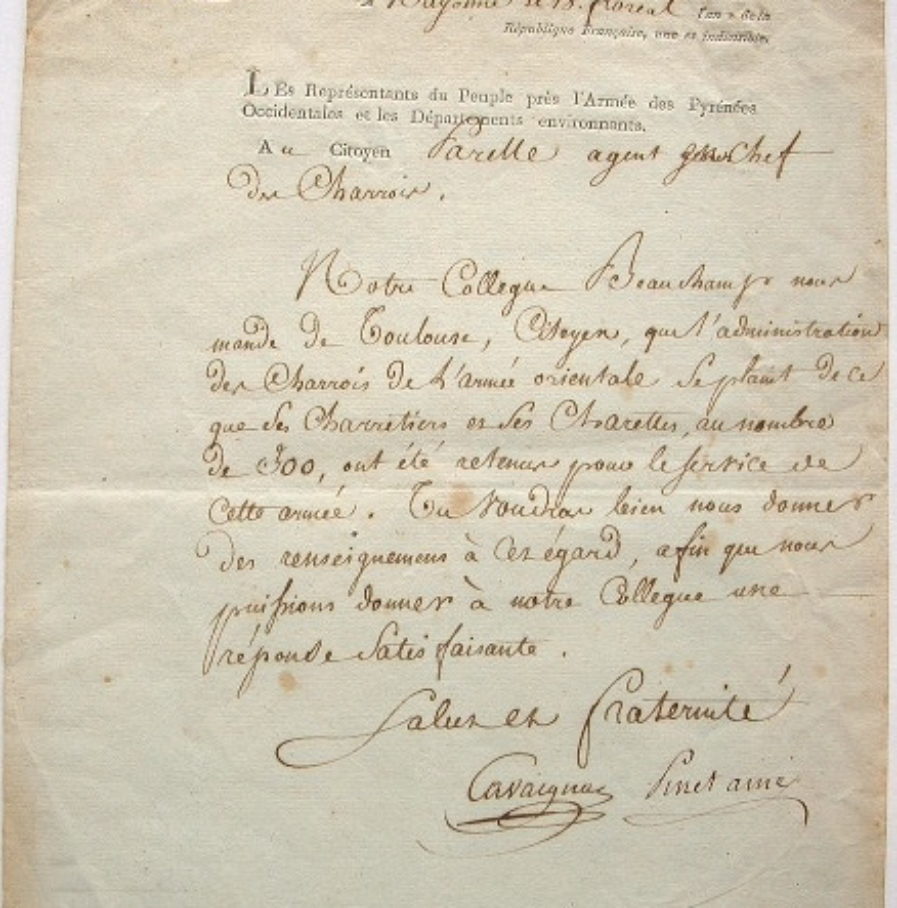 A Bayonne le 18. floreal l'an 2 de la
République Française, une et indivisible.
LEs Représentants du Peuple près l'Armée des Pyrénées
Occidentales et les Départements environnants.
Au Citoyen Parelle agent Chef
des Charrois.
Notre Collegue Beauchamp nous
mande de Toulouse, Citoyen, que l'administration
des Charrois de l'armée orientale se plaint de ce
que ses Charretiers et ses Charettes, au nombre
de 300, ont été retenus pour le service de
Cette armée. Tu voudras bien nous donner
des renseignemens à cet égard, afin que nous
puissions donner à notre Collegue une
réponse satisfaisante.
Salut et fraternité
Cavaignac Pinet ainé